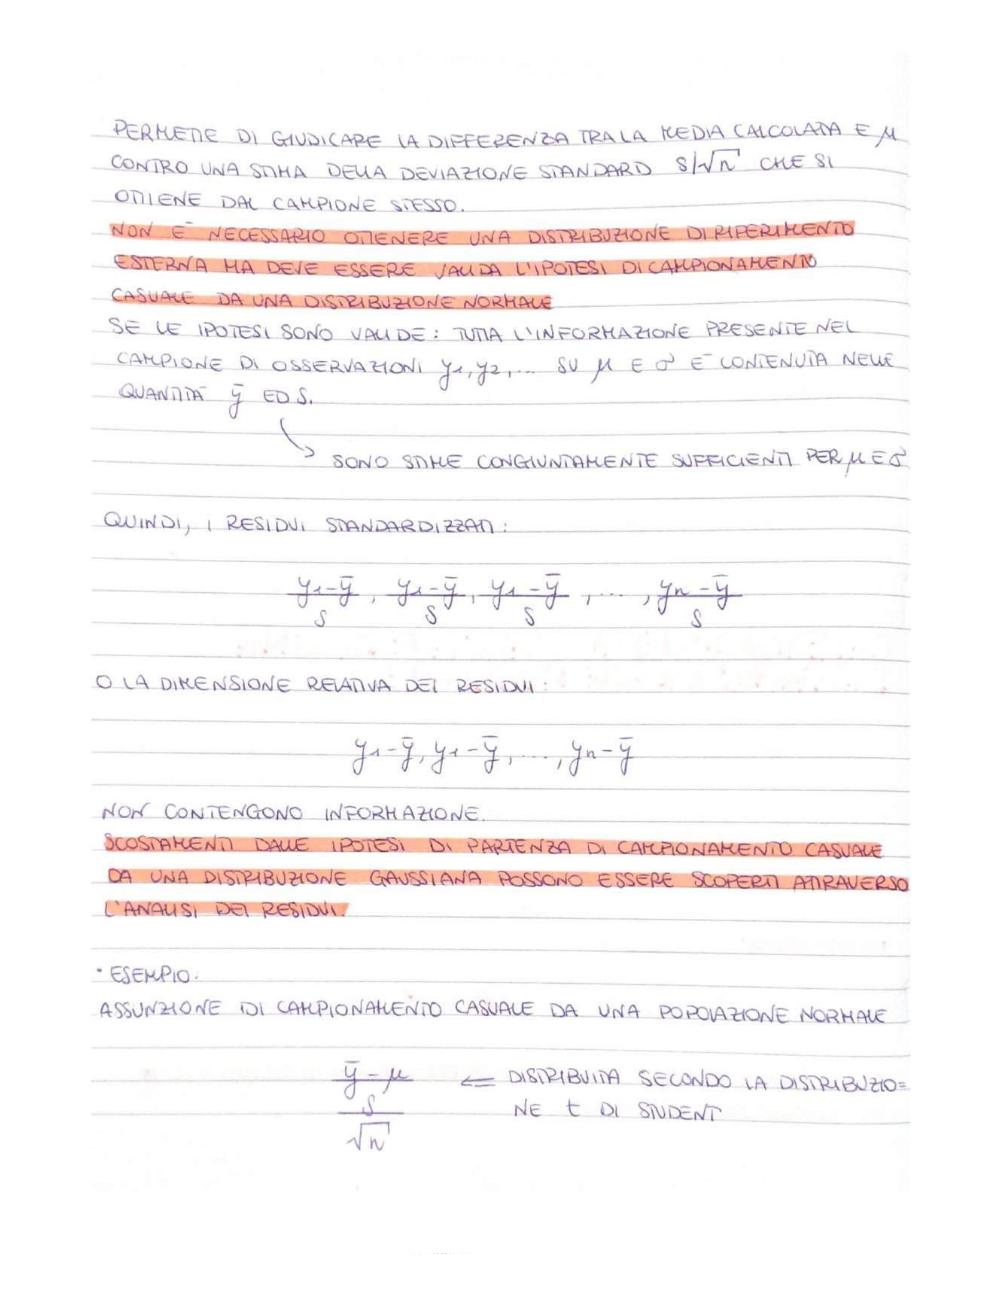 PERMETTE DI GIUDICARE LA DIFFERENZA TRA LA MEDIA CALCOLATA E μ
CONTRO UNA STIMA DELLA DEVIAZIONE STANDARD S/√n CHE SI
OTTIENE DAL CAMPIONE STESSO.
NON È NECESSARIO OTTENERE UNA DISTRIBUZIONE DI RIFERIMENTO
ESTERNA MA DEVE ESSERE VALIDA L'IPOTESI DI CAMPIONAMENTO
CASUALE DA UNA DISTRIBUZIONE NORMALE
SE LE IPOTESI SONO VALIDE: TUTTA L'INFORMAZIONE PRESENTE NEL
CAMPIONE DI OSSERVAZIONI y1, y2, ... SU μ E σ È CONTENUTA NELLE
QUANTITÀ ȳ ED S.
↘ SONO STIME CONGIUNTAMENTE SUFFICIENTI PER μ E σ
QUINDI, I RESIDUI STANDARDIZZATI:
(y1-ȳ)/S, (y1-ȳ)/S, (y1-ȳ)/S, ..., (yn-ȳ)/S
O LA DIMENSIONE RELATIVA DEI RESIDUI:
y1-ȳ, y1-ȳ, ..., yn-ȳ
NON CONTENGONO INFORMAZIONE.
SCOSTAMENTI DALLE IPOTESI DI PARTENZA DI CAMPIONAMENTO CASUALE
DA UNA DISTRIBUZIONE GAUSSIANA POSSONO ESSERE SCOPERTI ATTRAVERSO
L'ANALISI DEI RESIDUI.
• ESEMPIO.
ASSUNZIONE DI CAMPIONAMENTO CASUALE DA UNA POPOLAZIONE NORMALE
(ȳ-μ)/(S/√n) ⇐ DISTRIBUITA SECONDO LA DISTRIBUZIO=
NE t DI STUDENT